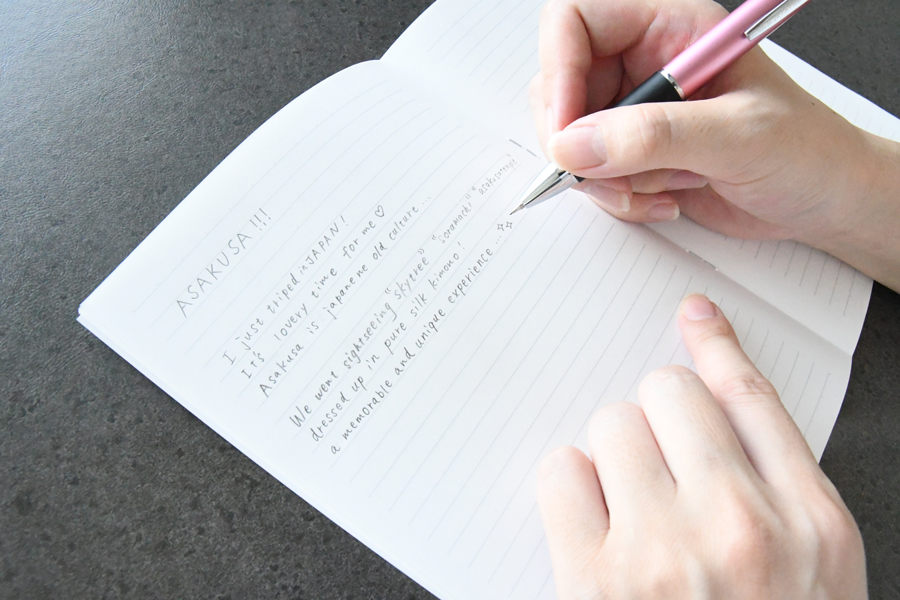 ASAKUSA!!!
I just triped in JAPAN!
It's lovery time for me♡
Asakusa is japanene old culture...
We went sightseeing "skytree" "soramachi" "asakusa
dressed up in pure silk kimono!
a memorable and unique experience...